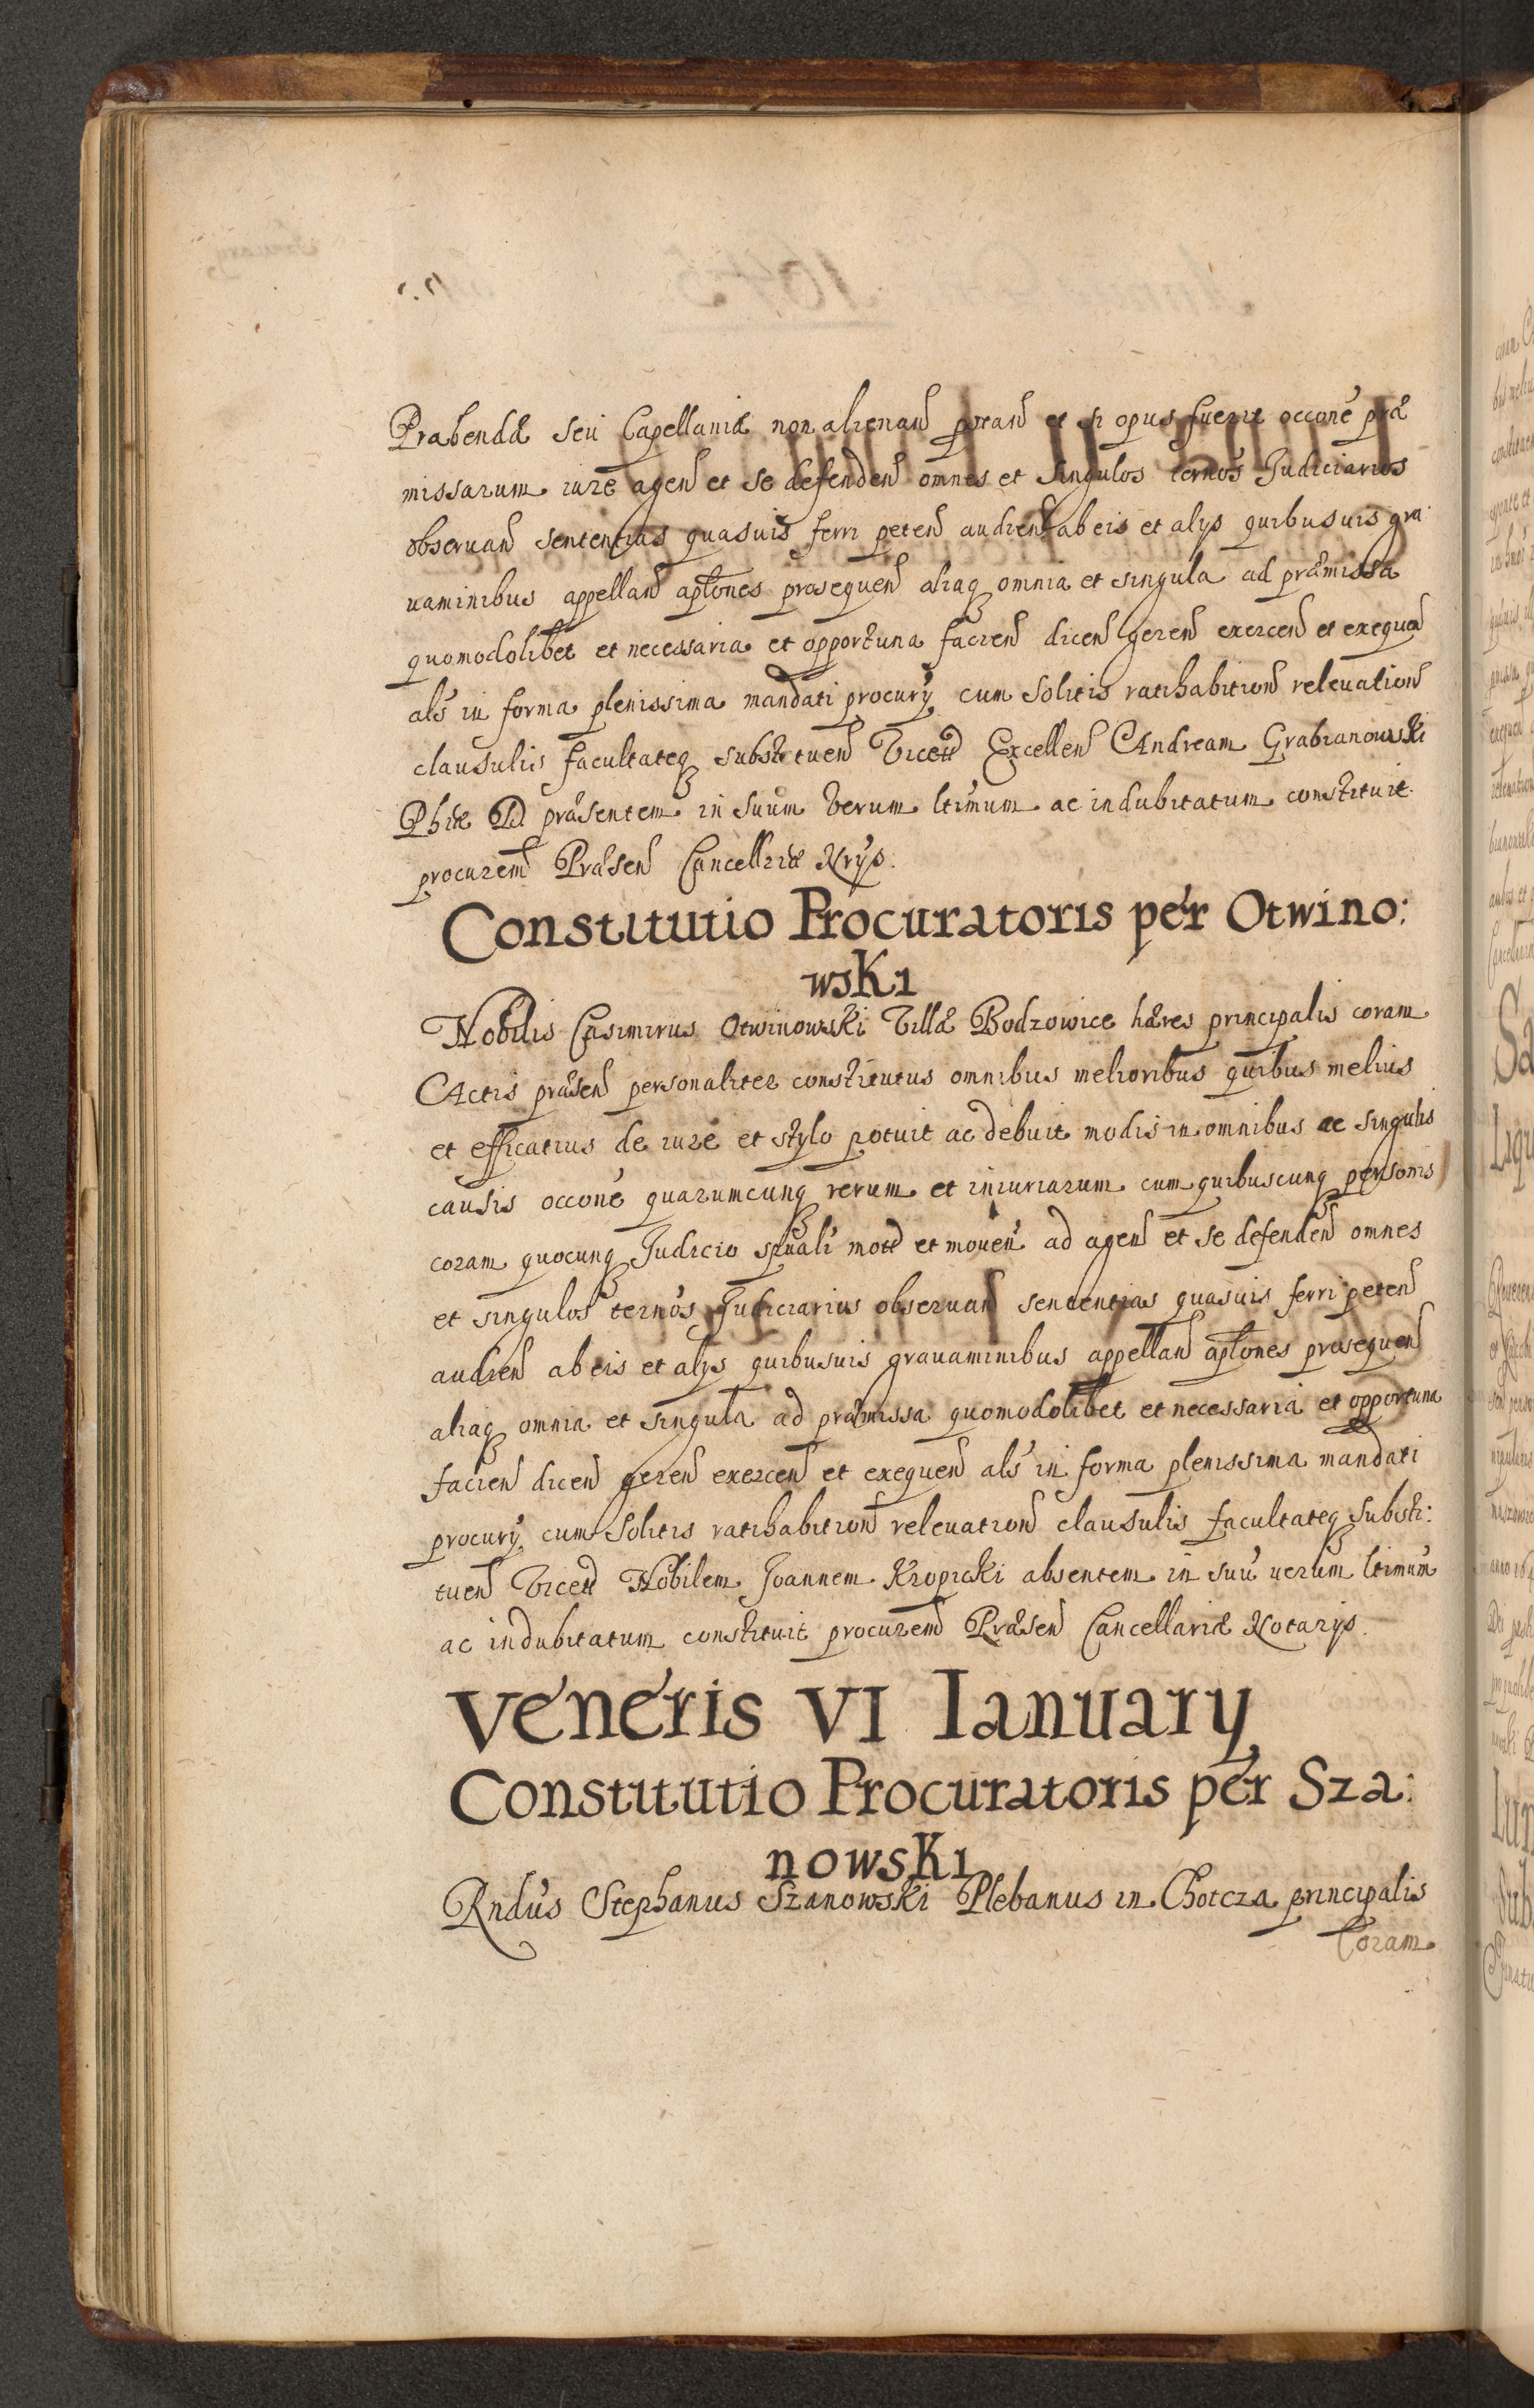 Præbendæ seu Capellaniæ non alienand et si opus fuerit occone præ
missarum iure agen et se defenden omnes et singulos ternos Judiciarios
observan sententias quasuis ferri peten audien ab eis et alys quibusuis gra
uaminibus appellan aplones prosequen aliaq omnia et singula ad præmissa
quomodolibet et necessaria et opportuna facien dicen geren exercen et exequen
als in forma plenissima mandati procury cum solitis ratihabition releuation
clausulis facultateq substituen Vices Excellen Andream Grabianowski
Phiæ D præsentem in suum verum ltimum ac indubitatum constituit
procurem Præsen Cancellriæ Nrys.
Constitutio Procuratoris per Otwino:
wski
Nobilis Casimirus Otwinowski Villæ Bodzowice hæres principalis coram
Actis præsen personaliter constitutus omnibus melioribus quibus melius
et efficatius de iure et stylo potuit ac debuit modis in omnibus ac singulis
causis occone quarumcunq rerum et iniuriarum cum quibuscunq personis
coram quocunq Judicio spuali mot et mouen ad agen et se defenden omnes
et singulos ternos Judiciarius observan sententias quasuis ferri peten
audien ab eis et alys quibusuis grauaminibus appellan aplones prosequen
aliaq omnia et singula ad præmissa quomodolibet et necessaria et opportuna
facien dicen geren exercen et exequen als in forma plenissima mandati
procury cum solitis ratihabition releuation clausulis facultateq substi:
tuen Vices Nobilem Joannem Kropicki absentem in suu uerum ltimum
ac indubitatum constituit procurem Præsen Cancellariæ Notarys.
Veneris VI Ianuary
Constitutio Procuratoris per Sza:
nowski
Rndus Stephanus Szanowski Plebanus in Chotcza principalis
Coram